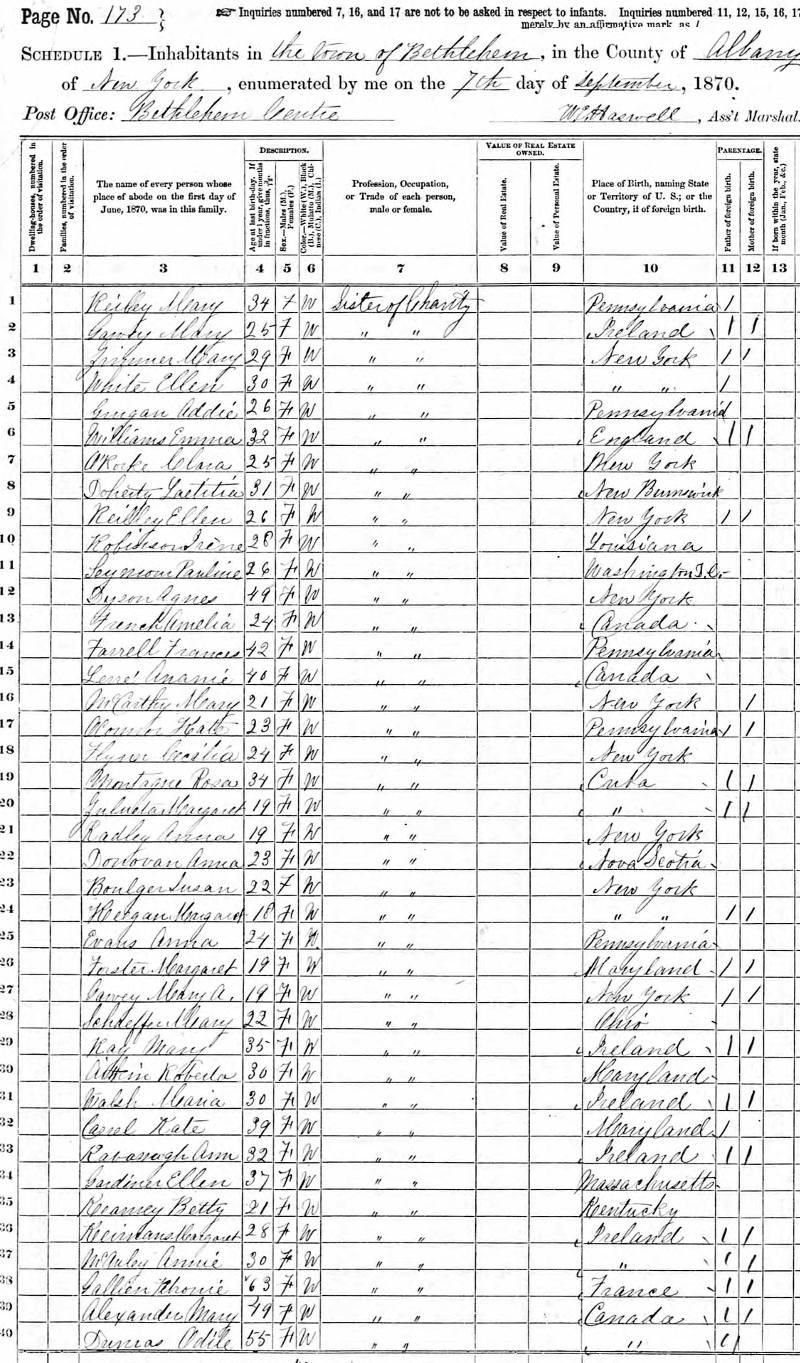 Page No. 173
☞ Inquiries numbered 7, 16, and 17 are not to be asked in respect to infants. Inquiries numbered 11, 12, 15, 16, 17
merely by an affirmative mark, as /
SCHEDULE 1.—Inhabitants in the town of Bethlehem, in the County of Albany
of New York, enumerated by me on the 7th day of September, 1870.
Post Office: Bethlehem Centre W Haswell, Ass't Marshal.
Dwelling-houses, numbered in the order of visitation.
Families, numbered in the order of visitation.
The name of every person whose place of abode on the first day of June, 1870, was in this family.
DESCRIPTION.
Age at last birth-day. If under 1 year, give months in fractions, thus, 3/12.
Sex.—Males (M.), Females (F.)
Color.—White (W.), Black (B.), Mulatto (M.), Chinese (C.), Indian (I.)
Profession, Occupation, or Trade of each person, male or female.
VALUE OF REAL ESTATE OWNED.
Value of Real Estate.
Value of Personal Estate.
Place of Birth, naming State or Territory of U. S.; or the Country, if of foreign birth.
PARENTAGE.
Father of foreign birth.
Mother of foreign birth.
If born within the year, state month (Jan., Feb., &c.)
1 2 3 4 5 6 7 8 9 10 11 12 13
1 Reilley Mary 34 F W Sister of Charity Pennsylvania /
2 Mary 25 F W " " Ireland / /
3 Mary 29 F W " " New York / /
4 White Ellen 30 F W " " " " /
5 Addie 26 F W " " Pennsylvania
6 Williams Emma 32 F W " " England / /
7 O'Rorke Clara 25 F W " " New York
8 Doherty Laetitia 31 F W " " New Brunswick
9 Reilley Ellen 26 F W " " New York / /
10 Robinson Irene 28 F W " " Louisiana
11 Seymour Pauline 26 F W " " Washington D.C.
12 Dyson Agnes 49 F W " " New York
13 French Amelia 24 F W " " Canada
14 Farrell Frances 42 F W " " Pennsylvania
15 Lené Ananie 40 F W " " Canada
16 McCarthy Mary 21 F W " " New York /
17 Oconnor Kate 23 F W " " Pennsylvania / /
18 Cecilia 24 F W " " New York
19 Montague Rosa 34 F W " " Cuba / /
20 Zulueta Margaret 19 F W " " " / /
21 Radley Anna 19 F W " " New York
22 Donovan Anna 23 F W " " Nova Scotia
23 Boulger Susan 22 F W " " New York
24 Keegan Margaret 18 F W " " " " / /
25 Evans Anna 24 F W " " Pennsylvania
26 Forster Margaret 19 F W " " Maryland / /
27 Mary A. 19 F W " " New York / /
28 Schaeffer Mary 22 F W " " Ohio
29 Kay Mary 35 F W " " Ireland / /
30 Aitkin Roberta 30 F W " " Maryland
31 Walsh Maria 30 F W " " Ireland / /
32 Carrol Kate 39 F W " " Maryland /
33 Kavanaugh Ann 32 F W " " Ireland / /
34 Gardiner Ellen 37 F W " " Massachusetts
35 Kearney Betty 21 F W " " Kentucky
36 Margaret 28 F W " " Ireland / /
37 McAuley Annie 30 F W " " " / /
38 Gallien 63 F W " " France / /
39 Alexander Mary 49 F W " " Canada / /
40 Dumas Odile 55 F W " " " / /